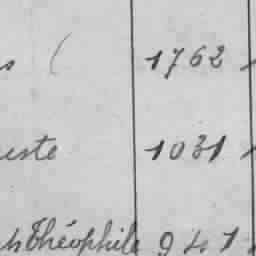 s ( 1762
uste 1031
Théophile 941